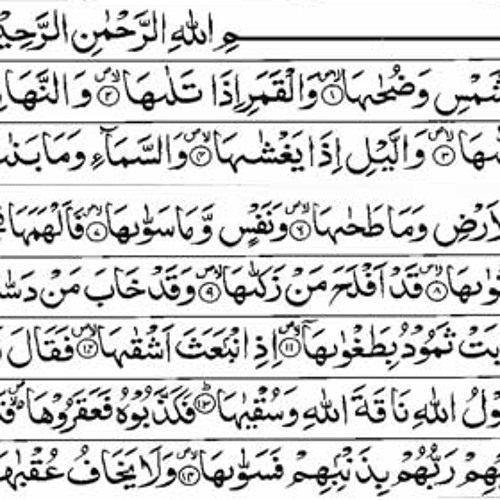 اللهِ الرَّحْمٰنِ الرَّحِيْ
شَمْسِ وَضُحٰىهَا ۝١ وَالْقَمَرِ اِذَا تَلٰىهَا ۝٢ وَالنَّهَا
ىهَا ۝٣ وَالَّيْلِ اِذَا يَغْشٰىهَا ۝٤ وَالسَّمَآءِ وَمَا بَنٰ
لْاَرْضِ وَمَا طَحٰىهَا ۝٦ وَنَفْسٍ وَّمَا سَوّٰىهَا فَاَلْهَمَهَا
وٰىهَا ۝٨ قَدْ اَفْلَحَ مَنْ زَكّٰىهَا ۝٩ وَقَدْ خَابَ مَنْ دَسّٰ
بَتْ ثَمُوْدُ بِطَغْوٰىهَا ۝١١ اِذِ انْۢبَعَثَ اَشْقٰىهَا ۝١٢ فَقَالَ
وْلُ اللهِ نَاقَةَ اللهِ وَسُقْيٰهَا ۝١٣ فَكَذَّبُوْهُ فَعَقَرُوْهَا
هِمْ رَبُّهُمْ بِذَنْۢبِهِمْ فَسَوّٰىهَا ۝١٤ وَلَا يَخَافُ عُقْبٰهَا